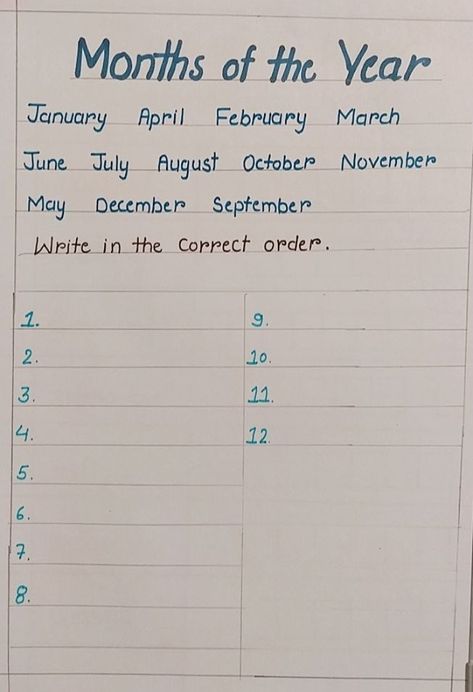 Months of the Year
January April February March
June July August October November
May December September
Write in the correct order.
1.
2.
3.
4.
5.
6.
7.
8.
9.
10.
11.
12.